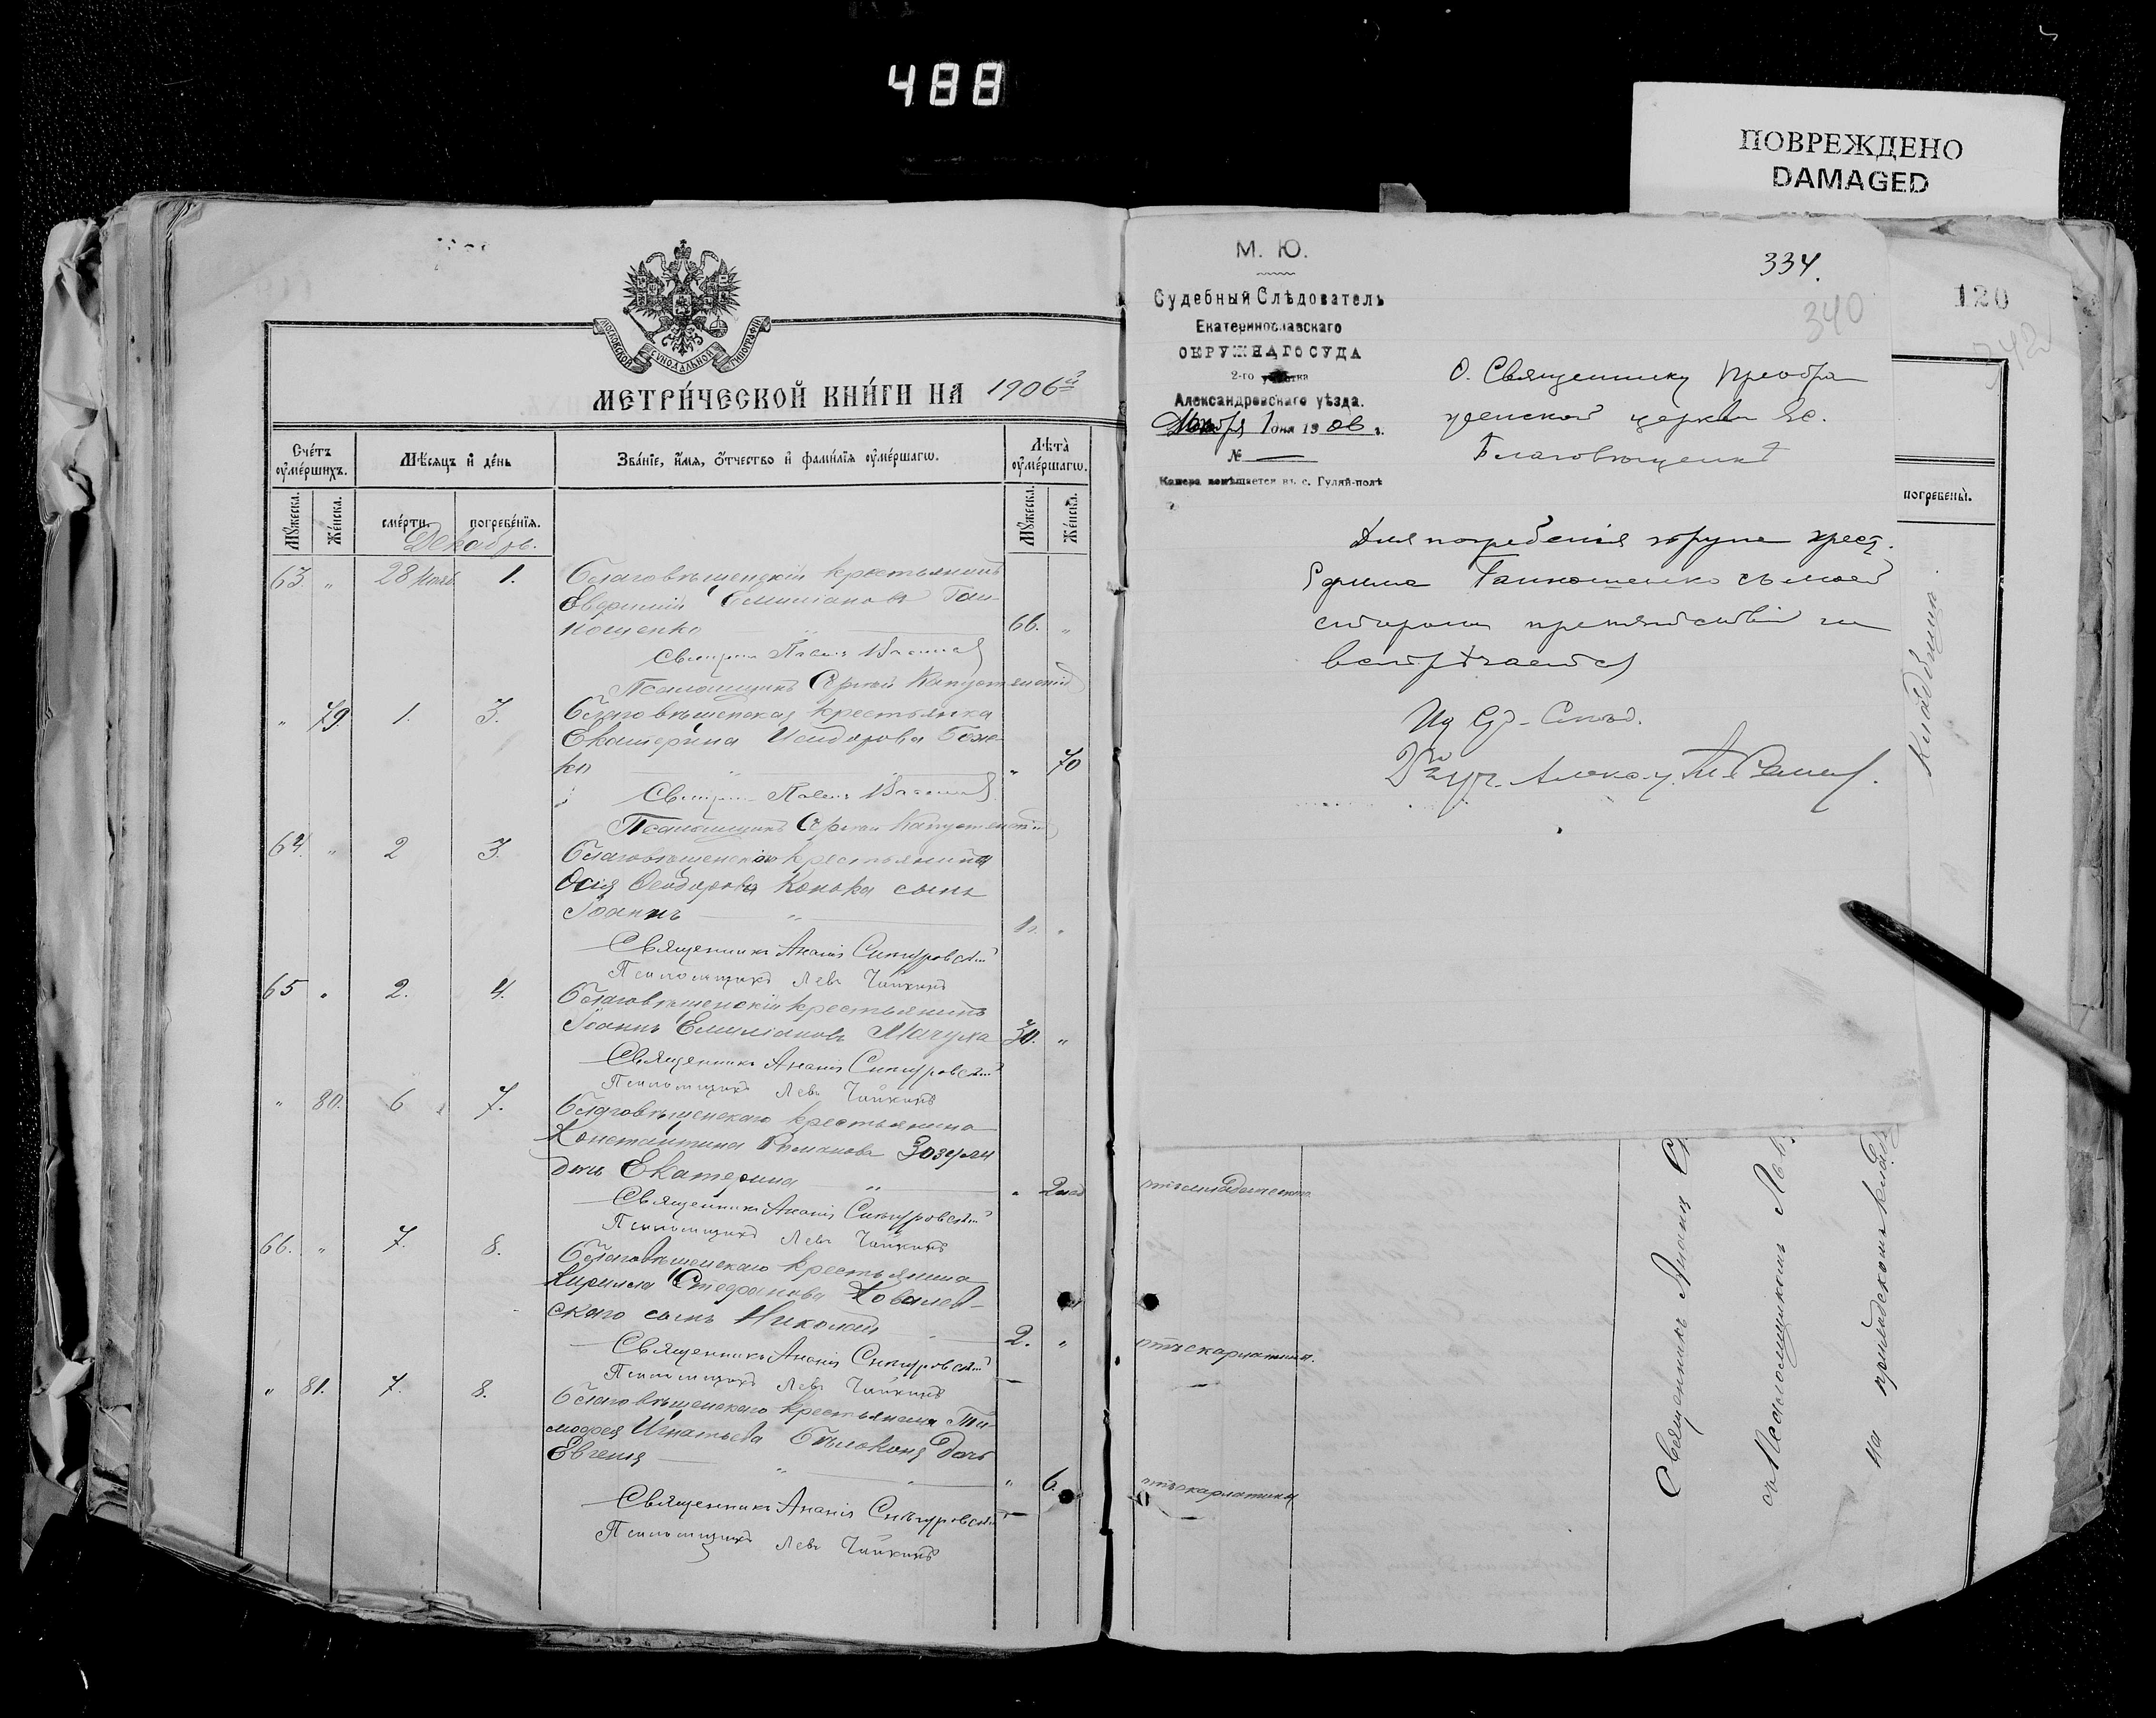 488
ПОВРЕЖДЕНО
DAMAGED
МОСКОВСКОЙ СѴНОДАЛЬНОЙ ТИПОГРАФІИ
МЕТРИ́ЧЕСКОЙ КНИ́ГИ НА 1906й
Сче́тъ оуме́ршихъ.
Мѣ́сяцъ и де́нь
Зва́ніе, и́мя, о́тчество и фами́лія оуме́ршагѡ.
Лѣ́та оуме́ршагѡ.
Мꙋжеска.
Же́нска.
сме́рти.
погребе́нія.
Мꙋжеска.
Же́нска.
Декабрь.
63. " 28 Нояб. 1. Благовѣщенскій крестьянинъ
Евфимій Емиліановъ Ган-
нощенко " 66. "
Псаломщикъ Сергій Капустянскій
" 79. 1. 3. Благовѣщенская крестьянка
Екатерина Исидорова Боже-
ко " " 70
Псаломщикъ Сергій Капустянскій
64. " 2 3. Благовѣщенскаго крестьянина
Осія Ѳеодорова Конока сынъ
Іоаннъ " 1 "
Священникъ Ананій Снѣгуровскій
Псаломщикъ Левъ Чайкинъ
65 " 2. 4. Благовѣщенскій крестьянинъ
Іоаннъ Емиліановъ Мачула 30. "
Священникъ Ананій Снѣгуровскій
Псаломщикъ Левъ Чайкинъ
" 80. 6 7. Благовѣщенскаго крестьянина
Константина Романова Зозули
дочь Екатерина " "
Священникъ Ананій Снѣгуровскій
Псаломщикъ Левъ Чайкинъ
66. " 7. 8. Благовѣщенскаго крестьянина
Кирилла Стефанова Ковалев-
скаго сынъ Николай 2. "
Священникъ Ананій Снѣгуровскій
Псаломщикъ Левъ Чайкинъ
" 81. 7. 8. Благовѣщенскаго крестьянина Ти-
моѳея Игнатьева Бѣлоконя дочь
Евгенія " " 6.
Священникъ Ананій Снѣгуровскій
Псаломщикъ Левъ Чайкинъ
М. Ю.
Судебный Слѣдователь
Екатеринославскаго
ОКРУЖНАГО СУДА
2-го участка
Александровскаго уѣзда.
1 дня 1906 г.
№ —
Камера помѣщается въ с. Гуляй-полѣ
334.
340
О. Священнику Преобра
женской церкви с.
Благовѣщенки
Для погребенія трупа крест.
Ефима Ганнощенко съ моей
стороны препятствій не
встрѣчается
Ид Суд. Слѣд.
2го уч. Алекс. у.
120
342
погребены̀.
Кладбищѣ.
отъ скарлатины.
отъ скарлатины
Священникъ Ананій Сн
съ Псаломщикомъ Левъ
на приходскомъ кладб